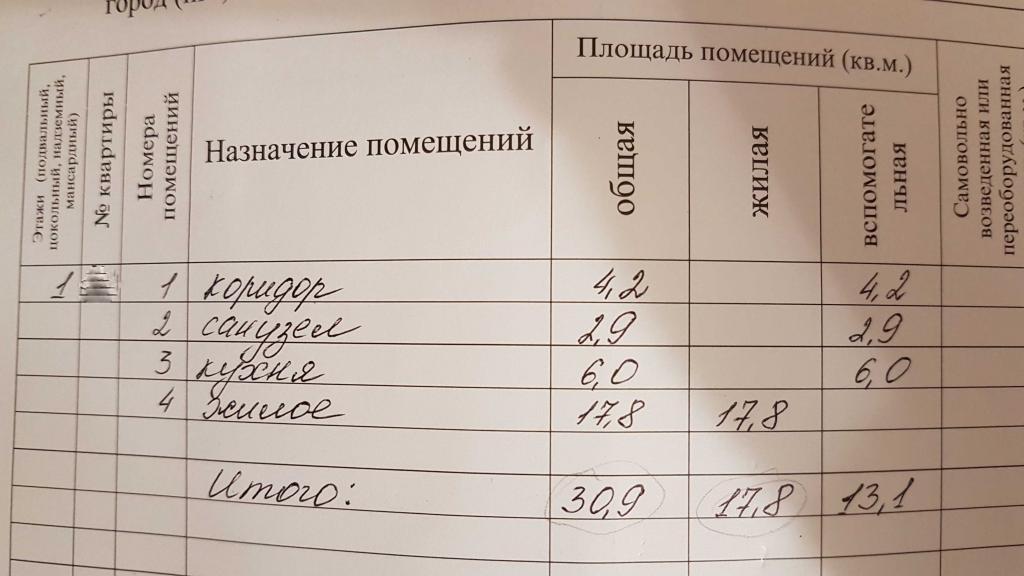 город
Площадь помещений (кв.м.)
Этажи (подвальный,
цокольный, надземный,
мансардный)
№ квартиры
Номера
помещений
Назначение помещений
общая
жилая
вспомогате
льная
Самовольно
возведенная или
переоборудованная
1 1 коридор 4,2 4,2
2 санузел 2,9 2,9
3 кухня 6,0 6,0
4 жилое 17,8 17,8
Итого: 30,9 17,8 13,1